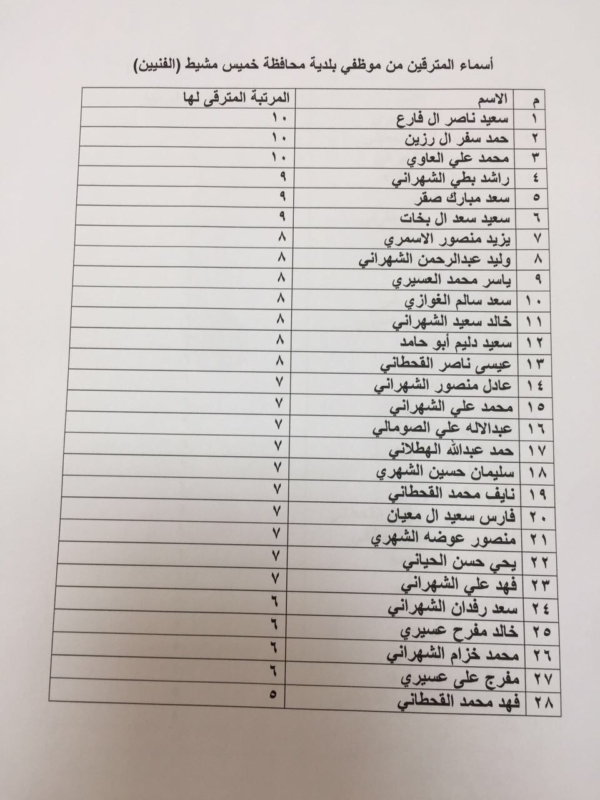 أسماء المترقين من موظفي بلدية محافظة خميس مشيط (الفنيين)
م الاسم المرتبة المترقى لها
١ سعيد ناصر ال فارع ١٠
٢ حمد سفر ال رزين ١٠
٣ محمد علي العاوي ١٠
٤ راشد بطي الشهراني ٩
٥ سعد مبارك صقر ٩
٦ سعيد سعد ال بخات ٩
٧ يزيد منصور الاسمري ٨
٨ وليد عبدالرحمن الشهراني ٨
٩ ياسر محمد العسيري ٨
١٠ سعد سالم الغوازي ٨
١١ خالد سعيد الشهراني ٨
١٢ سعيد دليم أبو حامد ٨
١٣ عيسى ناصر القحطاني ٨
١٤ عادل منصور الشهراني ٧
١٥ محمد علي الشهراني ٧
١٦ عبدالاله علي الصومالي ٧
١٧ حمد عبدالله الهطلاني ٧
١٨ سليمان حسين الشهري ٧
١٩ نايف محمد القحطاني ٧
٢٠ فارس سعيد ال معيان ٧
٢١ منصور عوضه الشهري ٧
٢٢ يحي حسن الحياني ٧
٢٣ فهد علي الشهراني ٧
٢٤ سعد رفدان الشهراني ٦
٢٥ خالد مفرح عسيري ٦
٢٦ محمد خزام الشهراني ٦
٢٧ مفرح على عسيري ٦
٢٨ فهد محمد القحطاني ٥